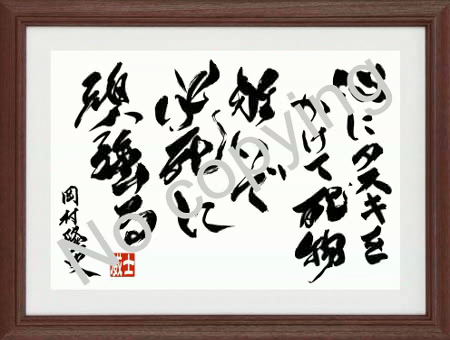 心にタスキを
かけて死物
狂いで
必死に
頑張る
岡村隆史
威士
No copying